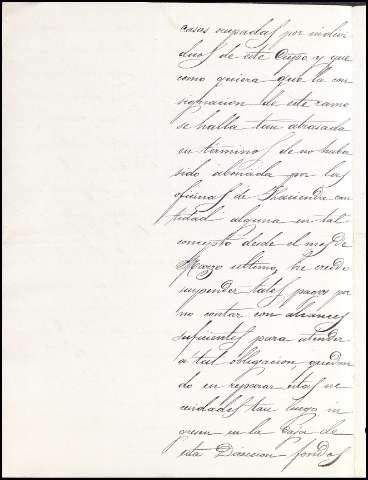 casas ocupadas por indivi
duos de este Cuerpo y que
como quiera que la con
signacion de este ramo
se halla tan atrasada
en términos de no haber
sido abonada por las
oficinas de Hacienda can
tidad alguna en tal
concepto desde el mes de
Marzo ultimo, he creido
suspender tales pagos por
no contar con alcances
suficientes para atender
a tal obligacion, quedan
do en reparar estas ne
cesidades tan luego in
gresen en la Caja de
esta Direccion fondos